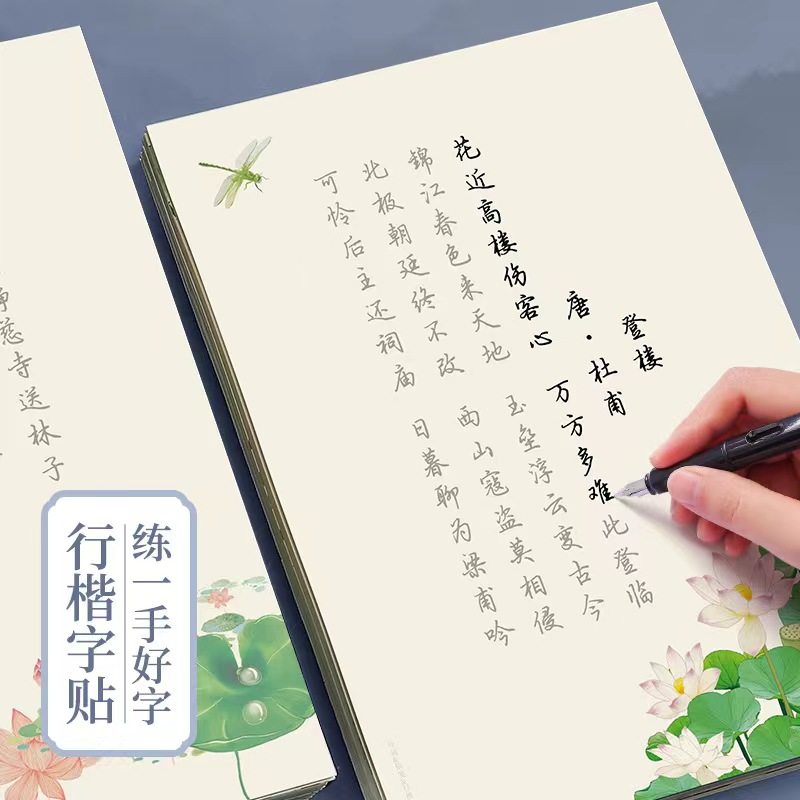 登楼
唐·杜甫
花近高楼伤客心 万方多难此登临
錦江春色来天地 玉垒浮云变古今
北极朝廷终不改 西山寇盗莫相侵
可怜后主还祠庙 日暮聊为梁甫吟
慈寺送林子
练一手好字
行楷字贴